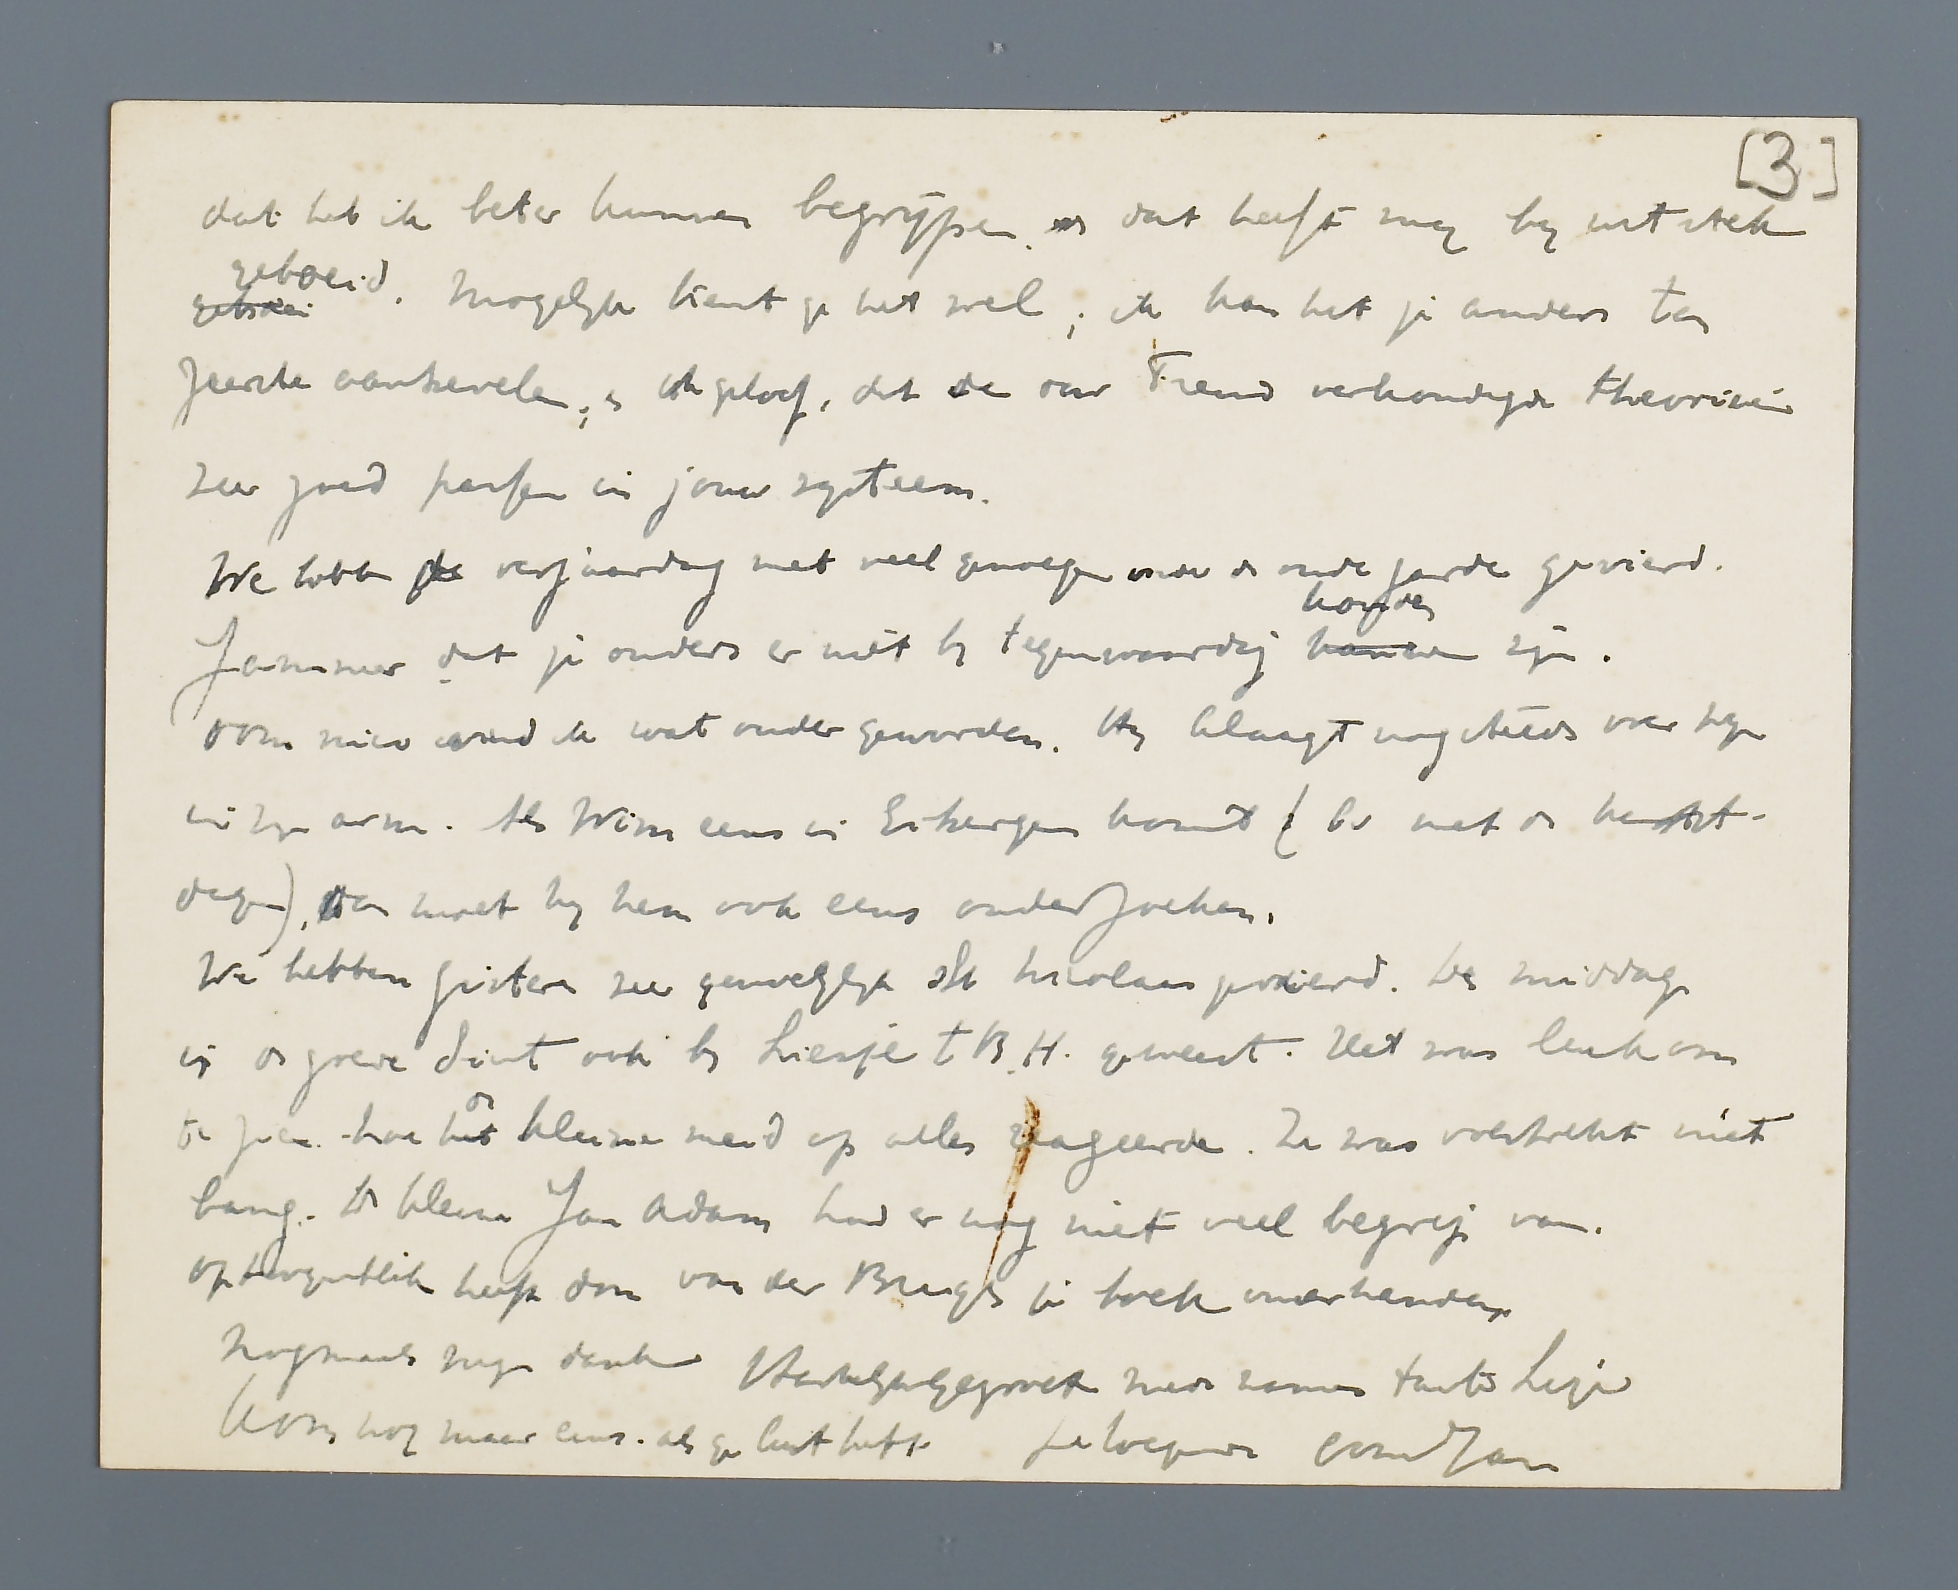 [3]
dat heb ik beter kunnen begrijpen en dat heeft mij bij uitstek
geboeid
geboei. Mogelijk kent ge het wel; ik kan het je anders ten
zeerste aanbevelen; en ik geloof, dat de door Freud verkondigde theorieën
zeer goed passen in jouw systeem.
We hebben de verjaardag met veel genoegen onder de oude garde gevierd.
konden
Jammer dat je ouders er niet bij tegenwoordig kunnen zijn.
Oom vind ik wat ouder geworden. Hij klaagt nog steeds over pijn
in zijn arm. Als Wim eens in Enkergen komt (bv met de kerst-
dagen), dan moet hij hem ook eens onderzoeken.
We hebben gisteren zeer genoegelijk St Nicolaas gevierd. Des middags
is de goede Sint ook bij Liesje t B. H. geweest. Het was leuk om
de
te zien hoe het kleine meid op alles reageerde. Ze was volstrekt niet
bang. De kleine Jan Adam had er nog niet veel begrip van.
Op het oogenblik heeft dom van der Brugh je boek onderhanden
Nogmaals mijn dank Hartelijk gegroet mede namens tante
Kom nog maar eens als ge lust hebt je toegenegen oom Jan